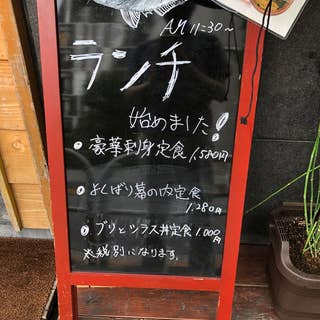 AM 11:30~
ランチ
始めました!
• 豪華刺身定食 1,580円
• よくばり幕の内定食
1,280円
• ブリとシラス丼定食 1,000円
※税別になります。